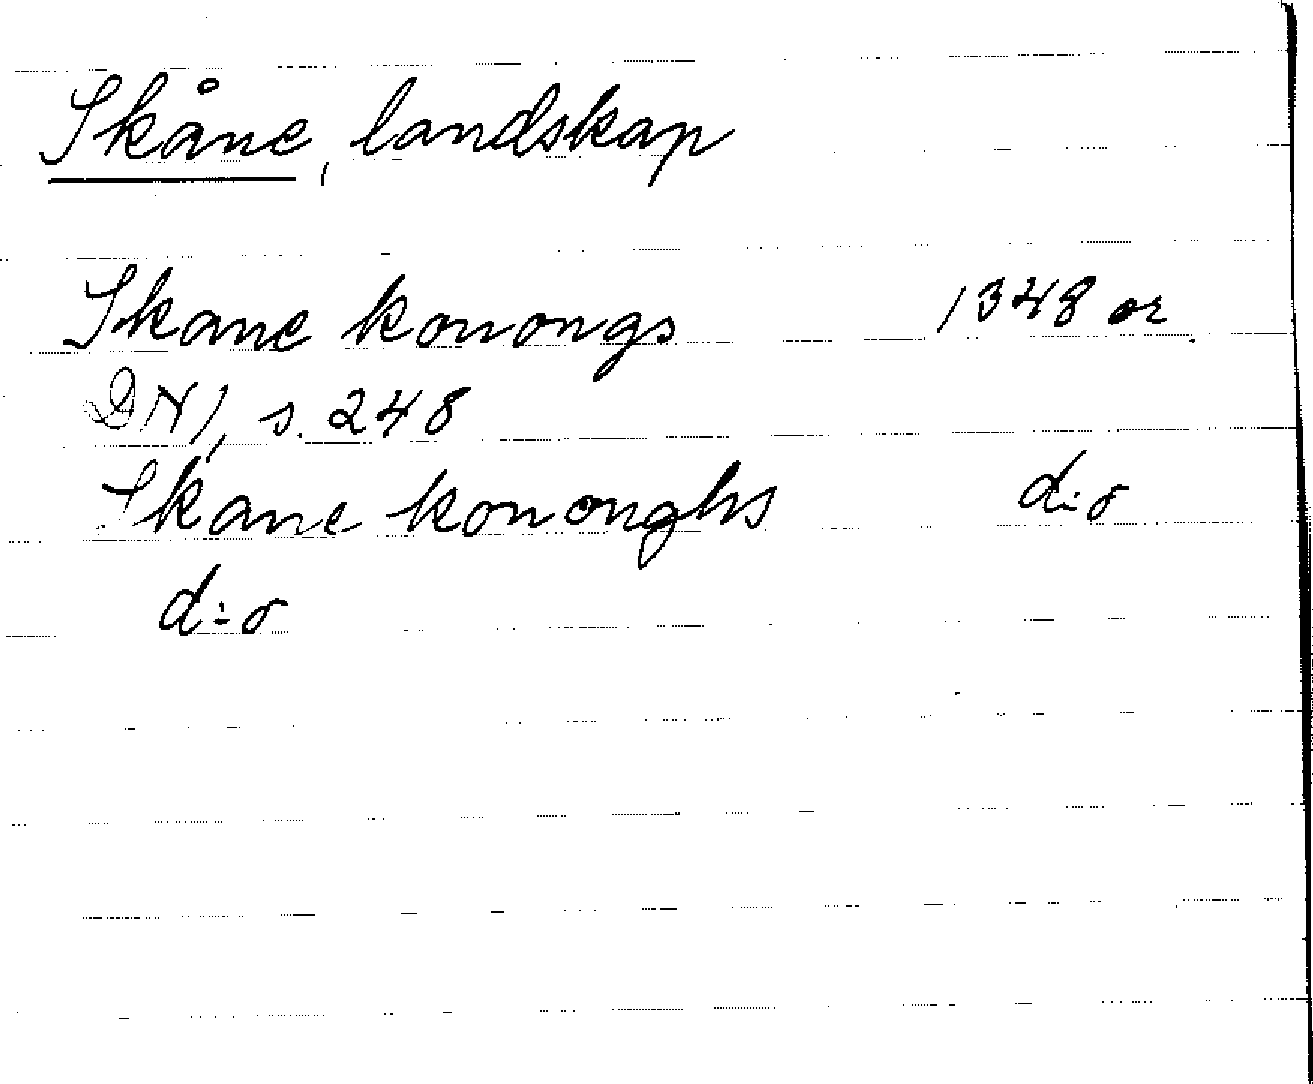 Skåne, landskap
Skane konongs 1348 or
DN 1, s. 248
Skane kononghs d:o
d:o